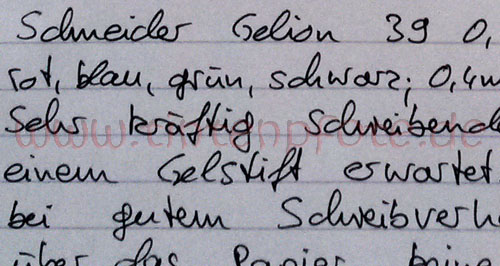 Schneider Gelion 39 0,
rot, blau, grün, schwarz; 0,4m
Sehr kräftig schreibend
www.tintenpfote.de
einem Gelstift erwartet
bei gutem Schreibverh
über das Papier keine